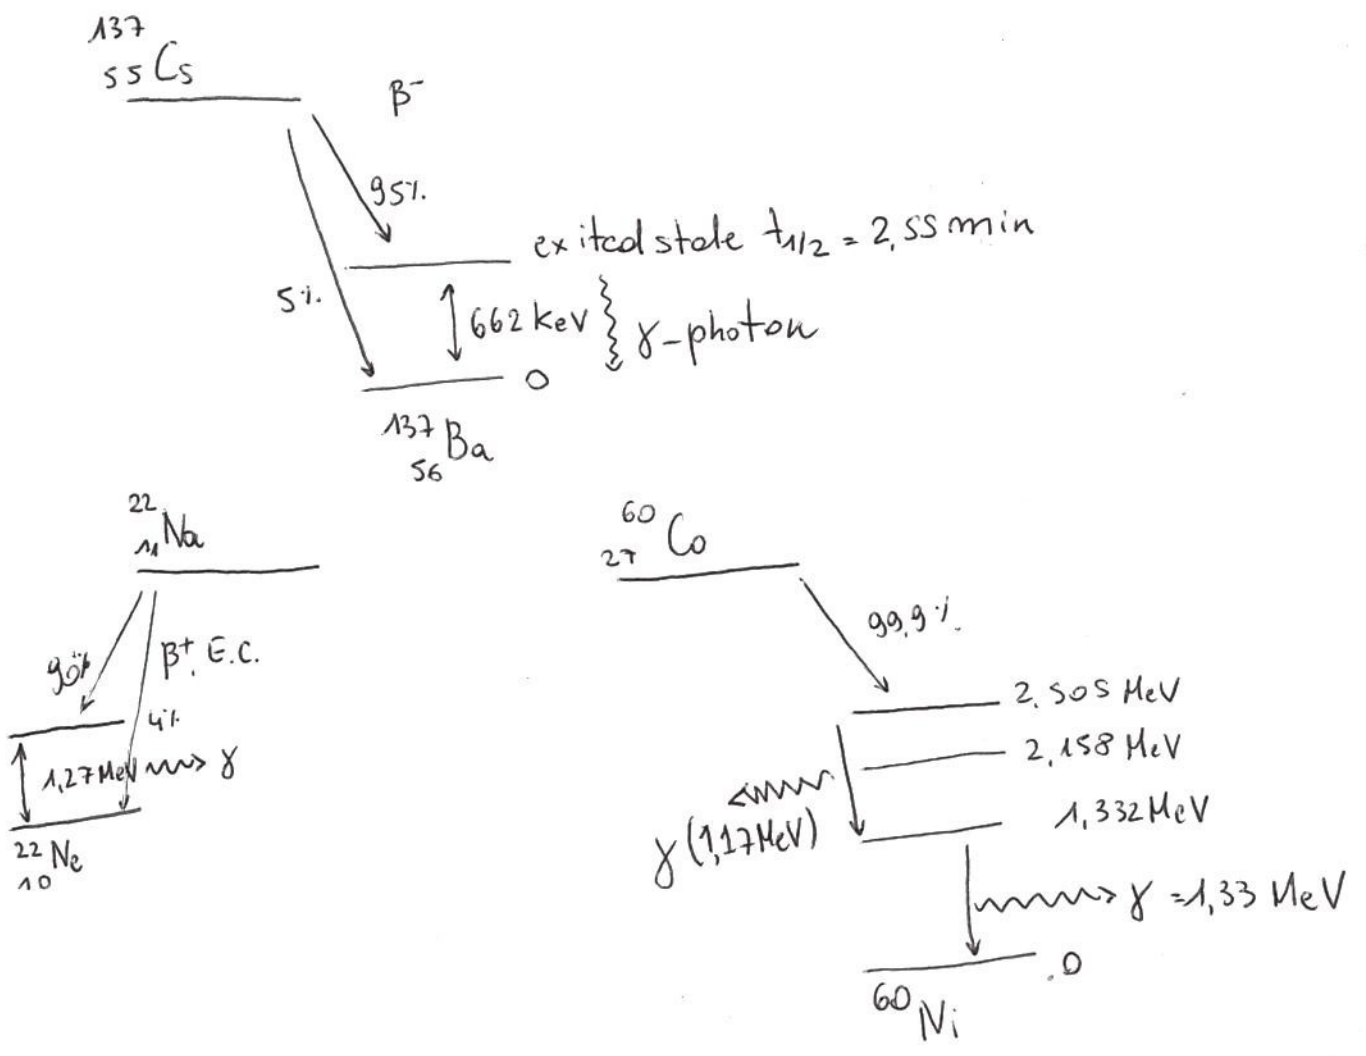 137
55 Cs
β⁻
95%
exited state t1/2 = 2,55 min
5%
662 keV
γ-photon
0
137
56 Ba
22
11 Na
90%
β⁺, E.C.
4%
1,27 MeV
γ
22
10 Ne
60
27 Co
99,9%
2,505 MeV
2,158 MeV
1,332 MeV
γ (1,17 MeV)
γ = 1,33 MeV
0
60 Ni